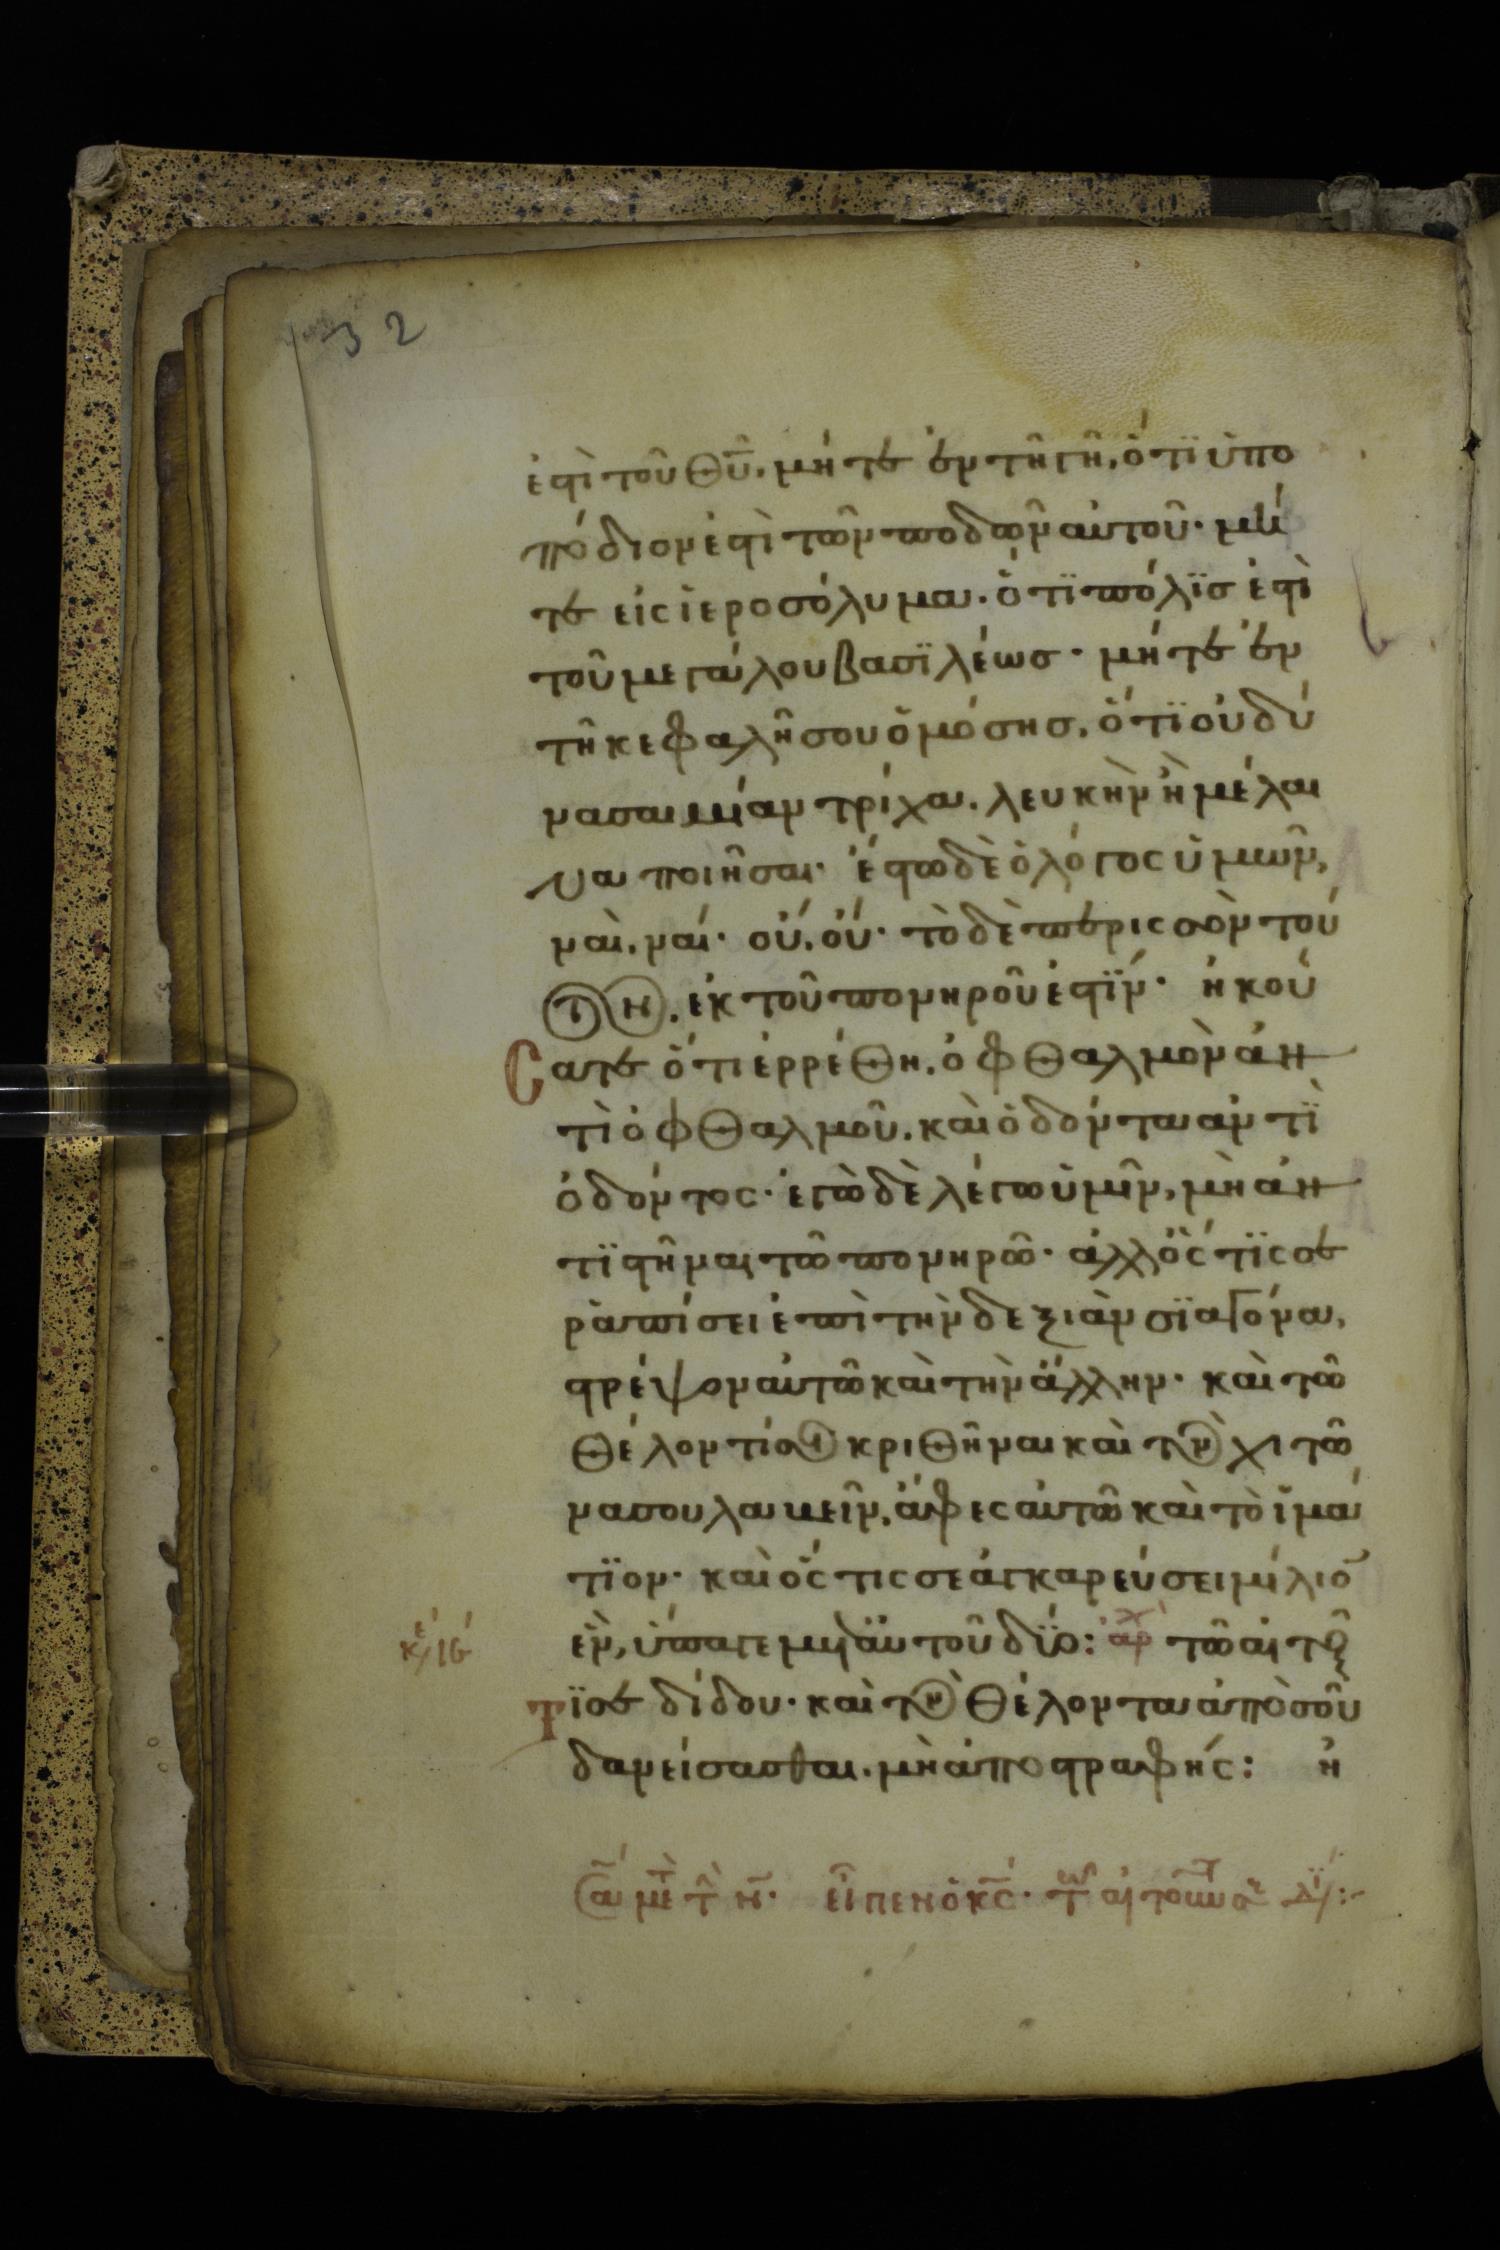 32
ἐστὶ τοῦ θυ̅. μήτε ἐν τῆ γῆ, ὅτϊ ὑπο
πόδιον ἐστὶ τῶν ποδῶν αὐτοῦ· μή
τε εἰς ἱεροσόλυμα. ὅτϊ πόλϊσ ἐστὶ
τοῦ μεγάλου βασϊλέωσ· μήτε ἐν
τῆ κεφαλῆ σου ὀμόσησ, ὅτϊ οὐ δύ
νασαι μίαν τρίχα. λευκὴν ἢ μέλαι
ναν ποιῆσαι· ἔστω δὲ ὁ λόγος ὑμῶν,
ναὶ, ναί· οὔ, οὔ· τὸ δὲ περισσὸν τού
των. ἐκ τοῦ πονηροῦ ἐστϊν· ἠκού
Cατε ὅτι ἐρρέθη. ὀφθαλμὸν ἀν
τὶ ὀφθαλμοῦ. καὶ ὀδόντα ἀντὶ
ὀδόντος· ἐγὼ δὲ λέγω ὑμῖν, μὴ ἀν
τϊστῆναι τῶ πονηρῶ· ἀλλ᾽ ὅς τϊς σε
ῥαπίσει ἐπὶ τὴν δεξιὰν σϊαγόνα,
στρέψον αὐτῶ καὶ τὴν ἄλλην· καὶ τῶ
θέλοντί σοι κριθῆναι καὶ τὸν χιτῶ
να σου λαβεῖν, ἄφες αὐτῶ καὶ τὸ ἱμά
τϊον· καὶ ὅς τις σε ἀγκαρεύσει μίλιο̅
ἕν, ὕπαγε μετ᾽ αὐτοῦ δύο: ἀρχ τῶ αἰτοῦ
Τϊσε δίδου· καὶ τὸν θέλοντα ἀπὸ σοῦ
δανείσασθαι. μὴ ἀποστραφῆς: ἠ
εἶπεν ὁ κς̅·